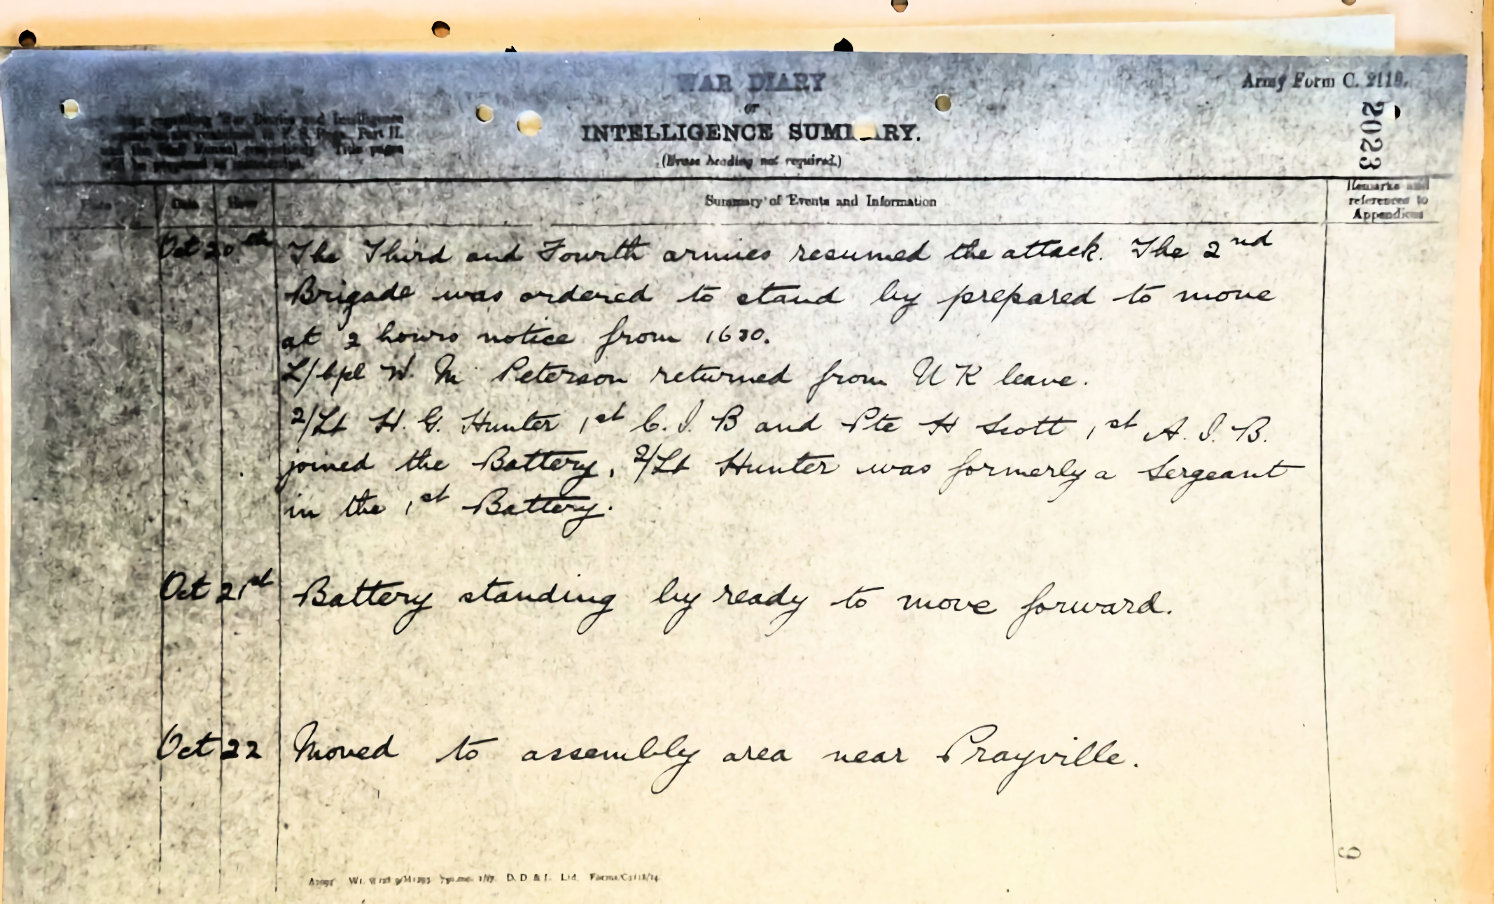 WAR DIARY
or
INTELLIGENCE SUMMARY.
(Erase heading not required.)
Army Form C. 2118.
2023
regarding War Diaries and Intelligence
Part II.
Title pages
Date Hour Summary of Events and Information Remarks and
references to
Appendices
Oct 20th The Third and Fourth armies resumed the attack. The 2nd
Brigade was ordered to stand by prepared to move
at 2 hours notice from 1630.
L/Cpl W. M Peterson returned from U K leave.
2/Lt H. G. Hunter 1st C. I. B and Pte H Scott 1st A. I. B.
joined the Battery, 2/Lt Hunter was formerly a Sergeant
in the 1st Battery.
Oct 21st Battery standing by ready to move forward.
Oct 22 Moved to assembly area near Prayville.
9
D. D. & L. Ltd.